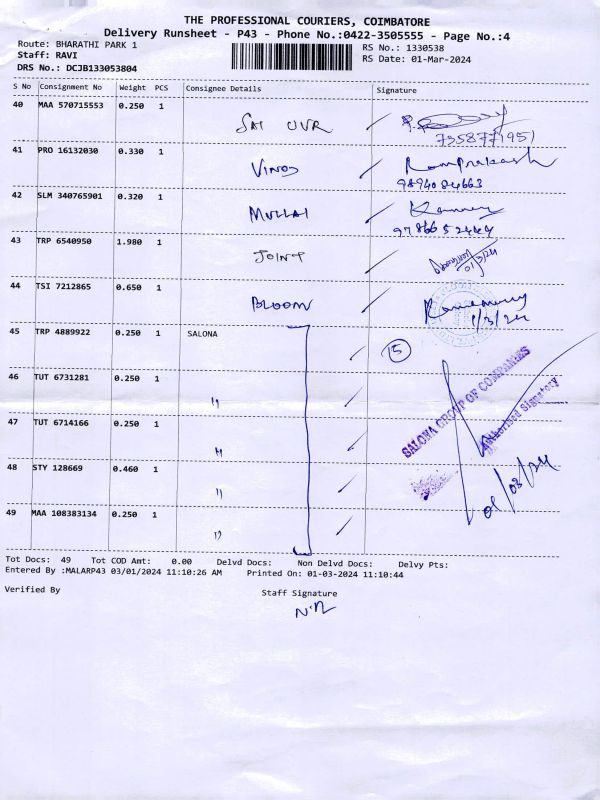 THE PROFESSIONAL COURIERS, COIMBATORE
Delivery Runsheet - P43 - Phone No.:0422-3505555 - Page No.:4
Route: BHARATHI PARK 1 RS No.: 1330538
Staff: RAVI RS Date: 01-Mar-2024
DRS No.: DCJB133053804
S No Consignment No Weight PCS Consignee Details Signature
40 MAA 570715553 0.250 1 SAI UVR
41 PRO 16132030 0.330 1 VINOJ Ramprakash
9894084663
42 SLM 340765901 0.320 1 MULLAI
9786652444
43 TRP 6540950 1.980 1 JOINT 01/3/24
44 TSI 7212865 0.650 1 BLOOM
1/3/24
45 TRP 4889922 0.250 1 SALONA 15
46 TUT 6731281 0.250 1 "
47 TUT 6714166 0.250 1 "
SALONA GROUP OF COMPANIES
Authorised Signatory
48 STY 128669 0.460 1 "
01/03/24
49 MAA 108383134 0.250 1 "
Tot Docs: 49 Tot COD Amt: 0.00 Delvd Docs: Non Delvd Docs: Delvy Pts:
Entered By :MALARP43 03/01/2024 11:10:26 AM Printed On: 01-03-2024 11:10:44
Verified By Staff Signature